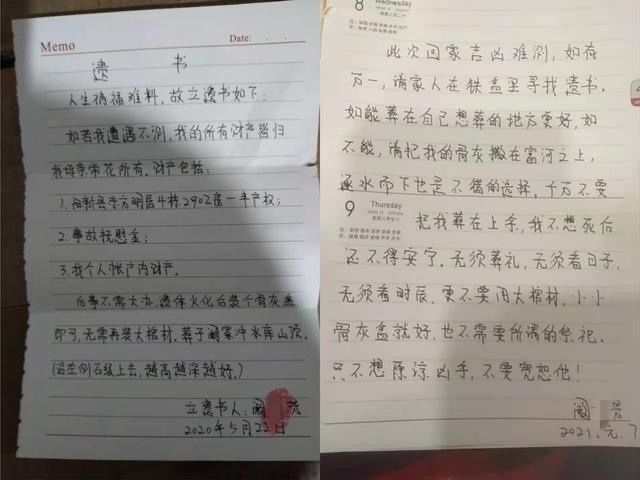 Memo
Date:
遗 书
人生祸福难料，故立遗书如下：
如若我遭遇不测，我的所有财产皆归
我母亲常花所有，财产包括：
1.阳新县东方明居4栋2902房一半产权；
2.事故抚慰金；
3.我个人帐户内财产。
后事不需大办，遗体火化后装个骨灰盒
即可，无需再装大棺材，葬于阚家冲水库山顶。
（沿左侧石级上去，越高越深越好。）
立遗书人：阚
2020年5月22日
8
Wednesday
此次回家吉凶难测，如有
万一，请家人在铁盒里寻找遗书。
如能葬在自己想葬的地方更好，如
不能，请把我的骨灰撒在富河之上，
逐水而下也是不错的选择，千万不要
9
Thursday
把我葬在上手，我不想死后
还不得安宁。无须葬礼，无须看日子，
无须看时辰，更不要用大棺材，小小
骨灰盒就好，也不需要所谓的祭祀。
只不想原谅凶手，不要宽恕他！
阚
2021.元.7